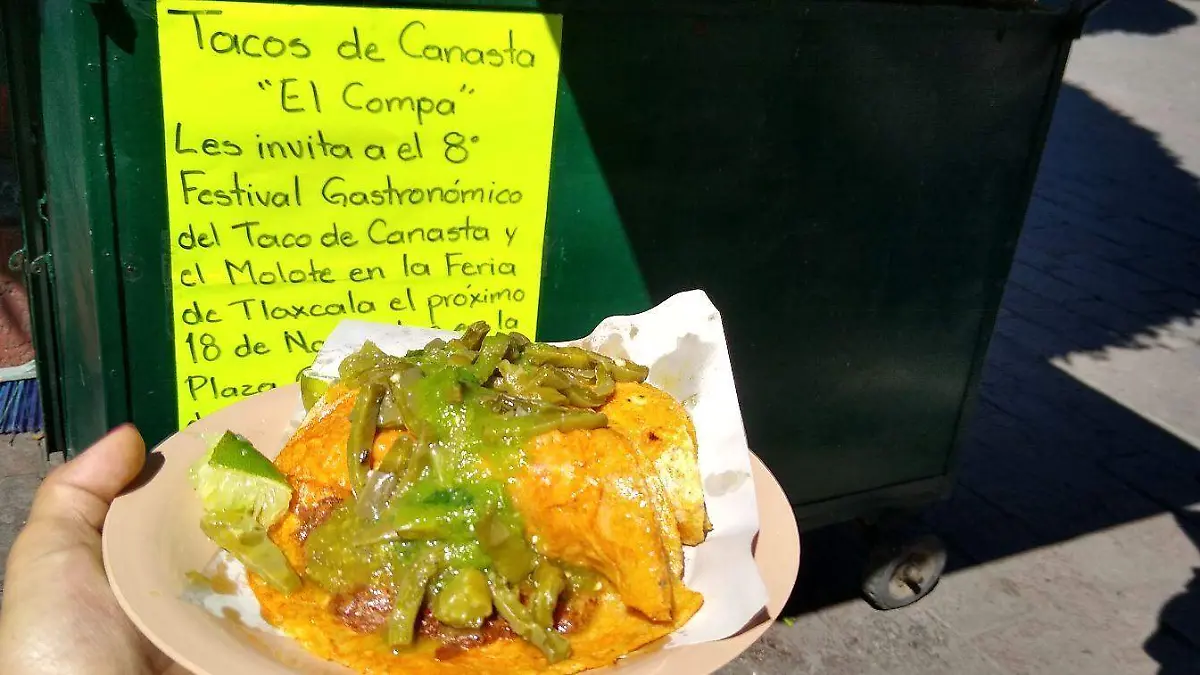 Tacos de Canasta
"El Compa"
Les invita a el 8°
Festival Gastronómico
del Taco de Canasta y
el Molote en la Feria
de Tlaxcala el próximo
18 de la
Plaza